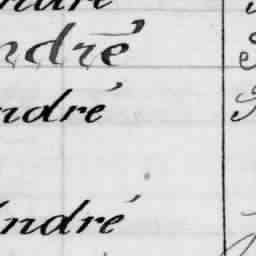 ndré
ndré
ndré
André